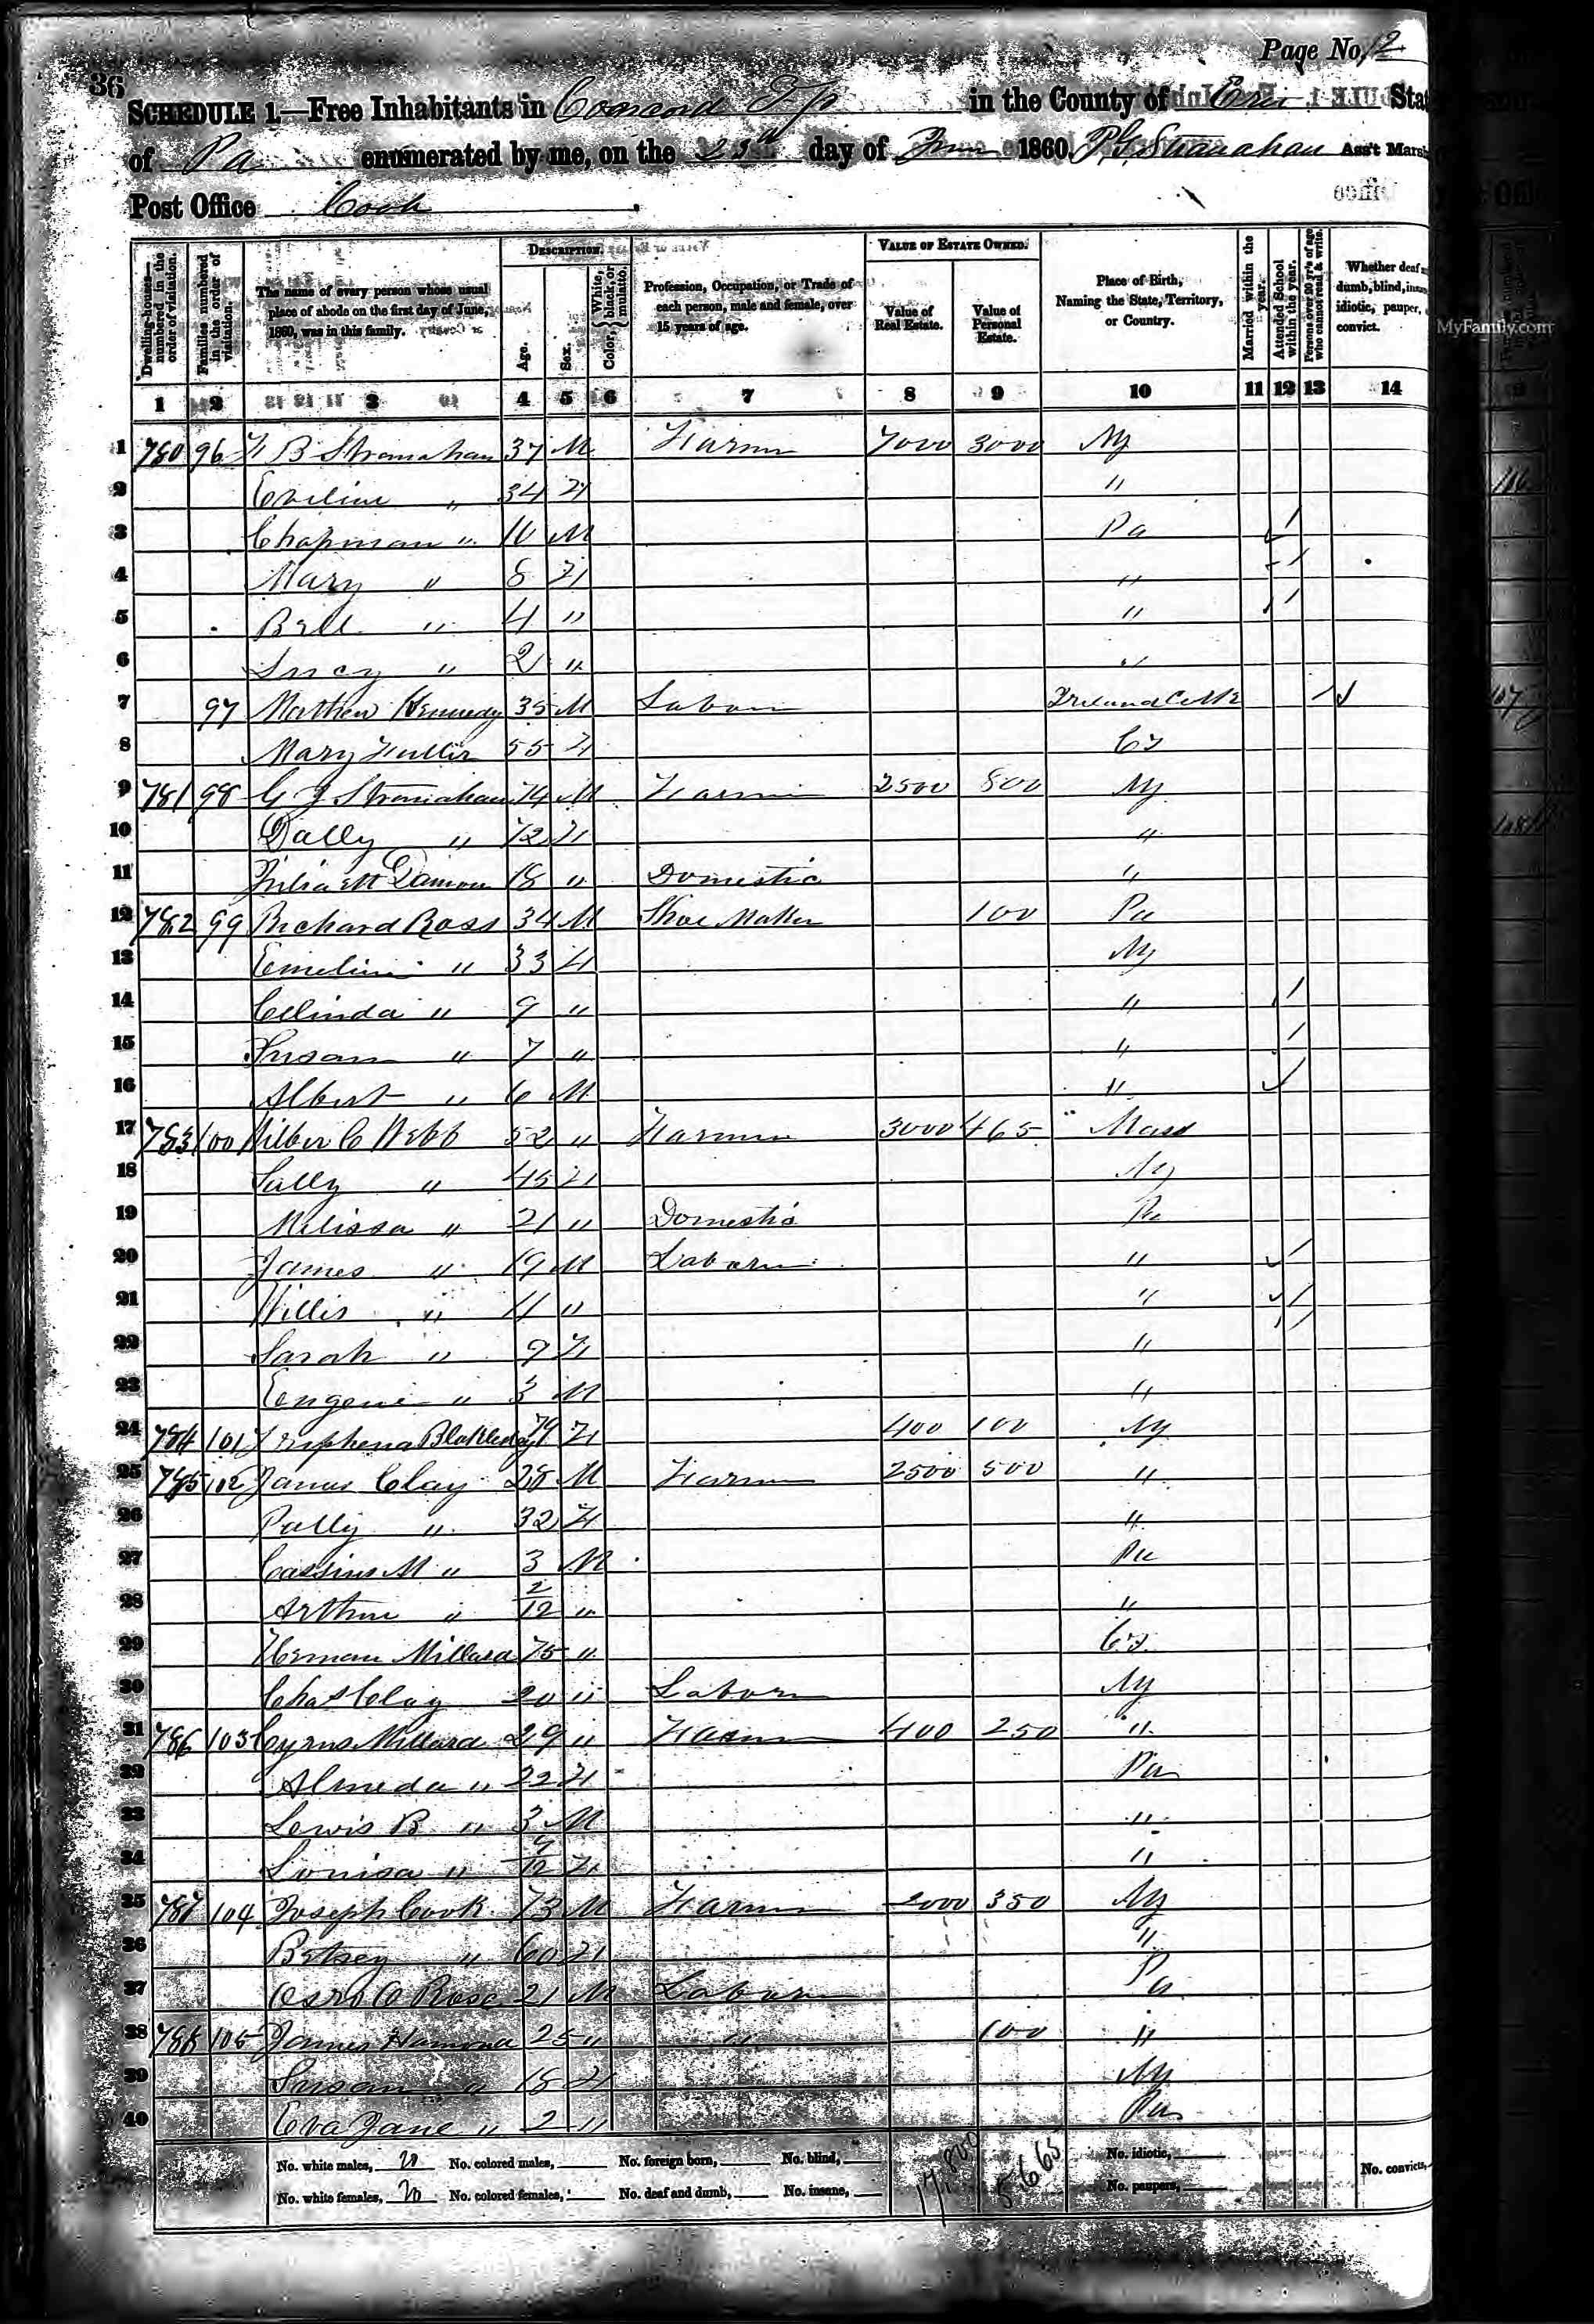 Page No. 12
36
SCHEDULE 1.—Free Inhabitants in Concord Tp in the County of Erie Stat
of Pa enumerated by me, on the 23d day of June 1860. P. G. Stranahan Ass't Marsh
Post Office Cook
Dwelling-houses—numbered in the order of visitation.
Families numbered in the order of visitation.
The name of every person whose usual place of abode on the first day of June, 1860, was in this family.
DESCRIPTION.
Age.
Sex.
Color, White, black, or mulatto.
Profession, Occupation, or Trade of each person, male and female, over 15 years of age.
VALUE OF ESTATE OWNED.
Value of Real Estate.
Value of Personal Estate.
Place of Birth, Naming the State, Territory, or Country.
Married within the year.
Attended School within the year.
Persons over 20 y'rs of age who cannot read & write.
Whether deaf dumb, blind, insane idiotic, pauper, convict.
MyFamily.com
1 2 3 4 5 6 7 8 9 10 11 12 13 14
1 780 96 B Stranahan 37 M Farmer 7000 3000 NY
2 Eveline " 34 F "
3 Chapman " 10 M Pa /
4 Mary " 8 F " /
5 Bell " 4 " " /
6 Lucy " 2 " "
7 97 Matthew Kennedy 35 M Labor Ireland /
8 Mary Fuller 55 F Ct
9 781 98 G J Stranahan 74 M Farmer 2500 800 NY
10 Dally " 72 F "
11 Juliaett Damon 18 " Domestic "
12 782 99 Richard Ross 34 M Shoe Maker 100 Pa
13 Emeline " 33 F NY
14 Celinda " 9 " " /
15 Susan " 7 " " /
16 Albert " 6 M " /
17 783 100 Wilber C Webb 52 " Farmer 3000 465 Mass
18 Sally " 45 F NY
19 Melissa " 21 " Domestic Pa
20 James " 19 M Laborer " /
21 Willis " 11 " " /
22 Sarah " 9 F " /
23 Eugene " 3 M "
24 784 101 Triphena Blakesley 79 F 400 100 NY
25 785 102 James Clay 28 M Farmer 2500 500 "
26 Polly " 32 F "
27 Cassius M " 3 M Pa
28 Arthur " 2/12 " "
29 Herman Millard 75 " Ct
30 Chas Clay 20 " Laborer NY
31 786 103 Cyrus Millard 29 " Farmer 400 250 "
32 Almeda " 22 F Pa
33 Lewis B " 3 M "
34 Louisa " /12 F "
35 787 104 Joseph Cook 73 M Farmer 2000 350 NY
36 Betsey " 60 F "
37 O Rose 21 M Laborer Pa
38 788 105 James Hamond 25 " " 100 "
39 Susan " 18 F NY
40 Eva Jane " 2 " Pa
No. white males, 20 No. colored males, No. foreign born, No. blind, 17,800 5665 No. idiotic,
No. white females, 20 No. colored females, No. deaf and dumb, No. insane, No. paupers, No. convicts,